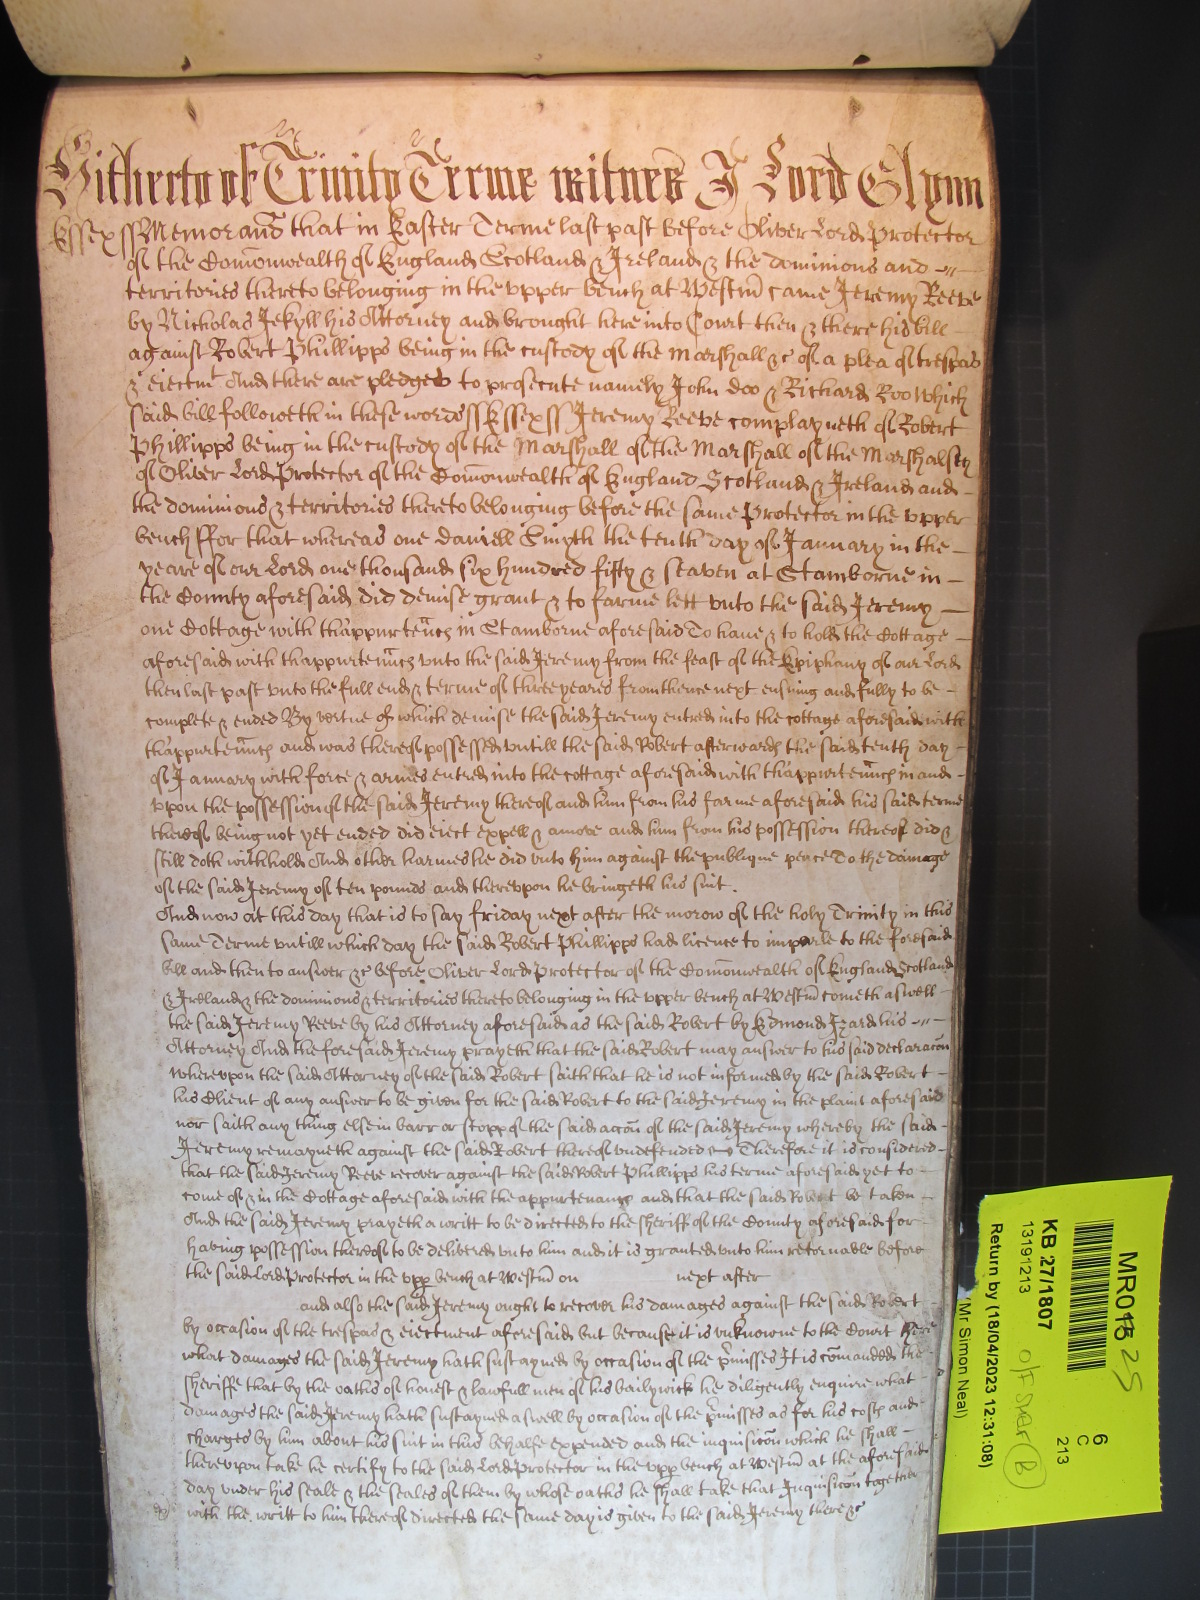 Hitherto of Trinity Terme witnes J Lord Glynn
Essex ss Memorand that in Easter Terme last past before Oliver Lord Protector
of the Comonwealth of England Scotland & Ireland & the dominions and
territories thereto belonging in the upper bench at Westm came Jeremy Reeve
by Nicholas Jekyll his Attorney and brought here into Court then & there his bill
against Robert Phillipps being in the custody of the Marshall &c of a plea of trespas
& eiectmt And there are pledges to prosecute namely John doo & Richard Roo Which
said bill followeth in these words ss Essex ss Jeremy Reeve complayneth of Robert
Phillipps being in the custody of the Marshall of the Marshall of the Marshalsey
of Oliver Lord Protector of the Comonwealth of England Scotland & Ireland and
the dominions & territories thereto belonging before the same Protector in the upper
bench ffor that whereas one daniell Smyth the tenth day of January in the
yeare of our Lord one thousand six hundred fifty & seaven at Stamborne in
the County aforesaid did demise grant & to farme lett unto the said Jeremy
one Cottage with thappurtenncs in Stamborne aforesaid To haue & to hold the Cottage
aforesaid with thappurtenncs unto the said Jeremy from the feast of the Epiphany of our Lord
then last past unto the full end & terme of three yeares from thence next ensuing and fully to be
complete & ended By vertue of which demise the said Jeremy entred into the cottage aforesaid with
thappurtenncs and was thereof possessed untill the said Robert afterwards the said tenth day
of January with force & armes entred into the cottage aforesaid with thappurtenncs in and
upon the possession of the said Jeremy thereof and him from his farme aforesaid his said terme
thereof being not yet ended did eiect expell & amove and him from his possession thereof did &
still doth withhold And other harmes he did unto him against the publique peace To the damage
of the said Jeremy of ten pounds and thereupon he bringeth his suit.
And now at this day that is to say friday next after the morow of the holy Trinity in this
same Terme untill which day the said Robert Phillipps had licence to imparle to the foresaid
bill and then to answer &c before Oliver Lord Protector of the Comonwealth of England Scotland
& Ireland & the dominions & territories thereto belonging in the upper bench at Westm cometh aswell
the said Jeremy Reeve by his Attorney aforesaid as the said Robert by Edmond Izard his
Attorney And the foresaid Jeremy prayeth that the said Robert may answer to his said declaracon
Whereupon the said Attorney of the said Robert saith that he is not informed by the said Robert
his Client of any answer to be given for the said Robert to the said Jeremy in the plaint aforesaid
nor saith any thing else in barr or stopp of the said accon of the said Jeremy whereby the said
Jeremy remayneth against the said Robert thereof undefended Therefore it is considered
that the said Jeremy Reeve recover against the said Robert Phillipps his terme aforesaid yet to
come of & in the Cottage aforesaid with the appurtenancs and that the said Robert be taken
And the said Jeremy prayeth a writt to be directed to the sheriff of the County aforesaid for
having possession thereof to be delivered unto him and it is granted unto him retornable before
the said Lord Protector in the upp bench at Westm on next after
and also the said Jeremy ought to recover his damages against the said Robert
by occasion of the trespas & eiectment aforesaid but because it is unknowne to the Court here
what damages the said Jeremy hath sustayned by occasion of the pmisses It is comanded the
sheriffe that by the oaths of honest & lawfull men of his bailywick he diligently enquire what
damages the said Jeremy hath sustayned aswell by occasion of the pmisses as for his costs and
charges by him about his suit in this behalfe expended and the inquisicon which he shall
thereupon take he certify to the said Lord Protector in the upp bench at Westm at the aforesaid
day under his seale & the seales of them by whose oaths he shall take that Inquisicon together
with the writt to him thereof directed the same day is given to the said Jeremy there &c
MR013 25
6
C
213
KB 27/1807
13191213
off Shelf (B)
Return by (18/04/2023 12:31:08)
(Mr Simon Neal)